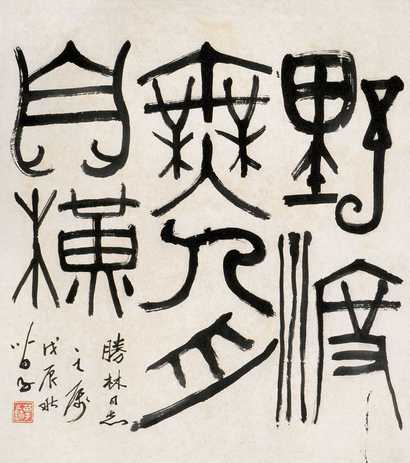 野渡
無人舟
自橫
勝林同志
之属
戊辰秋